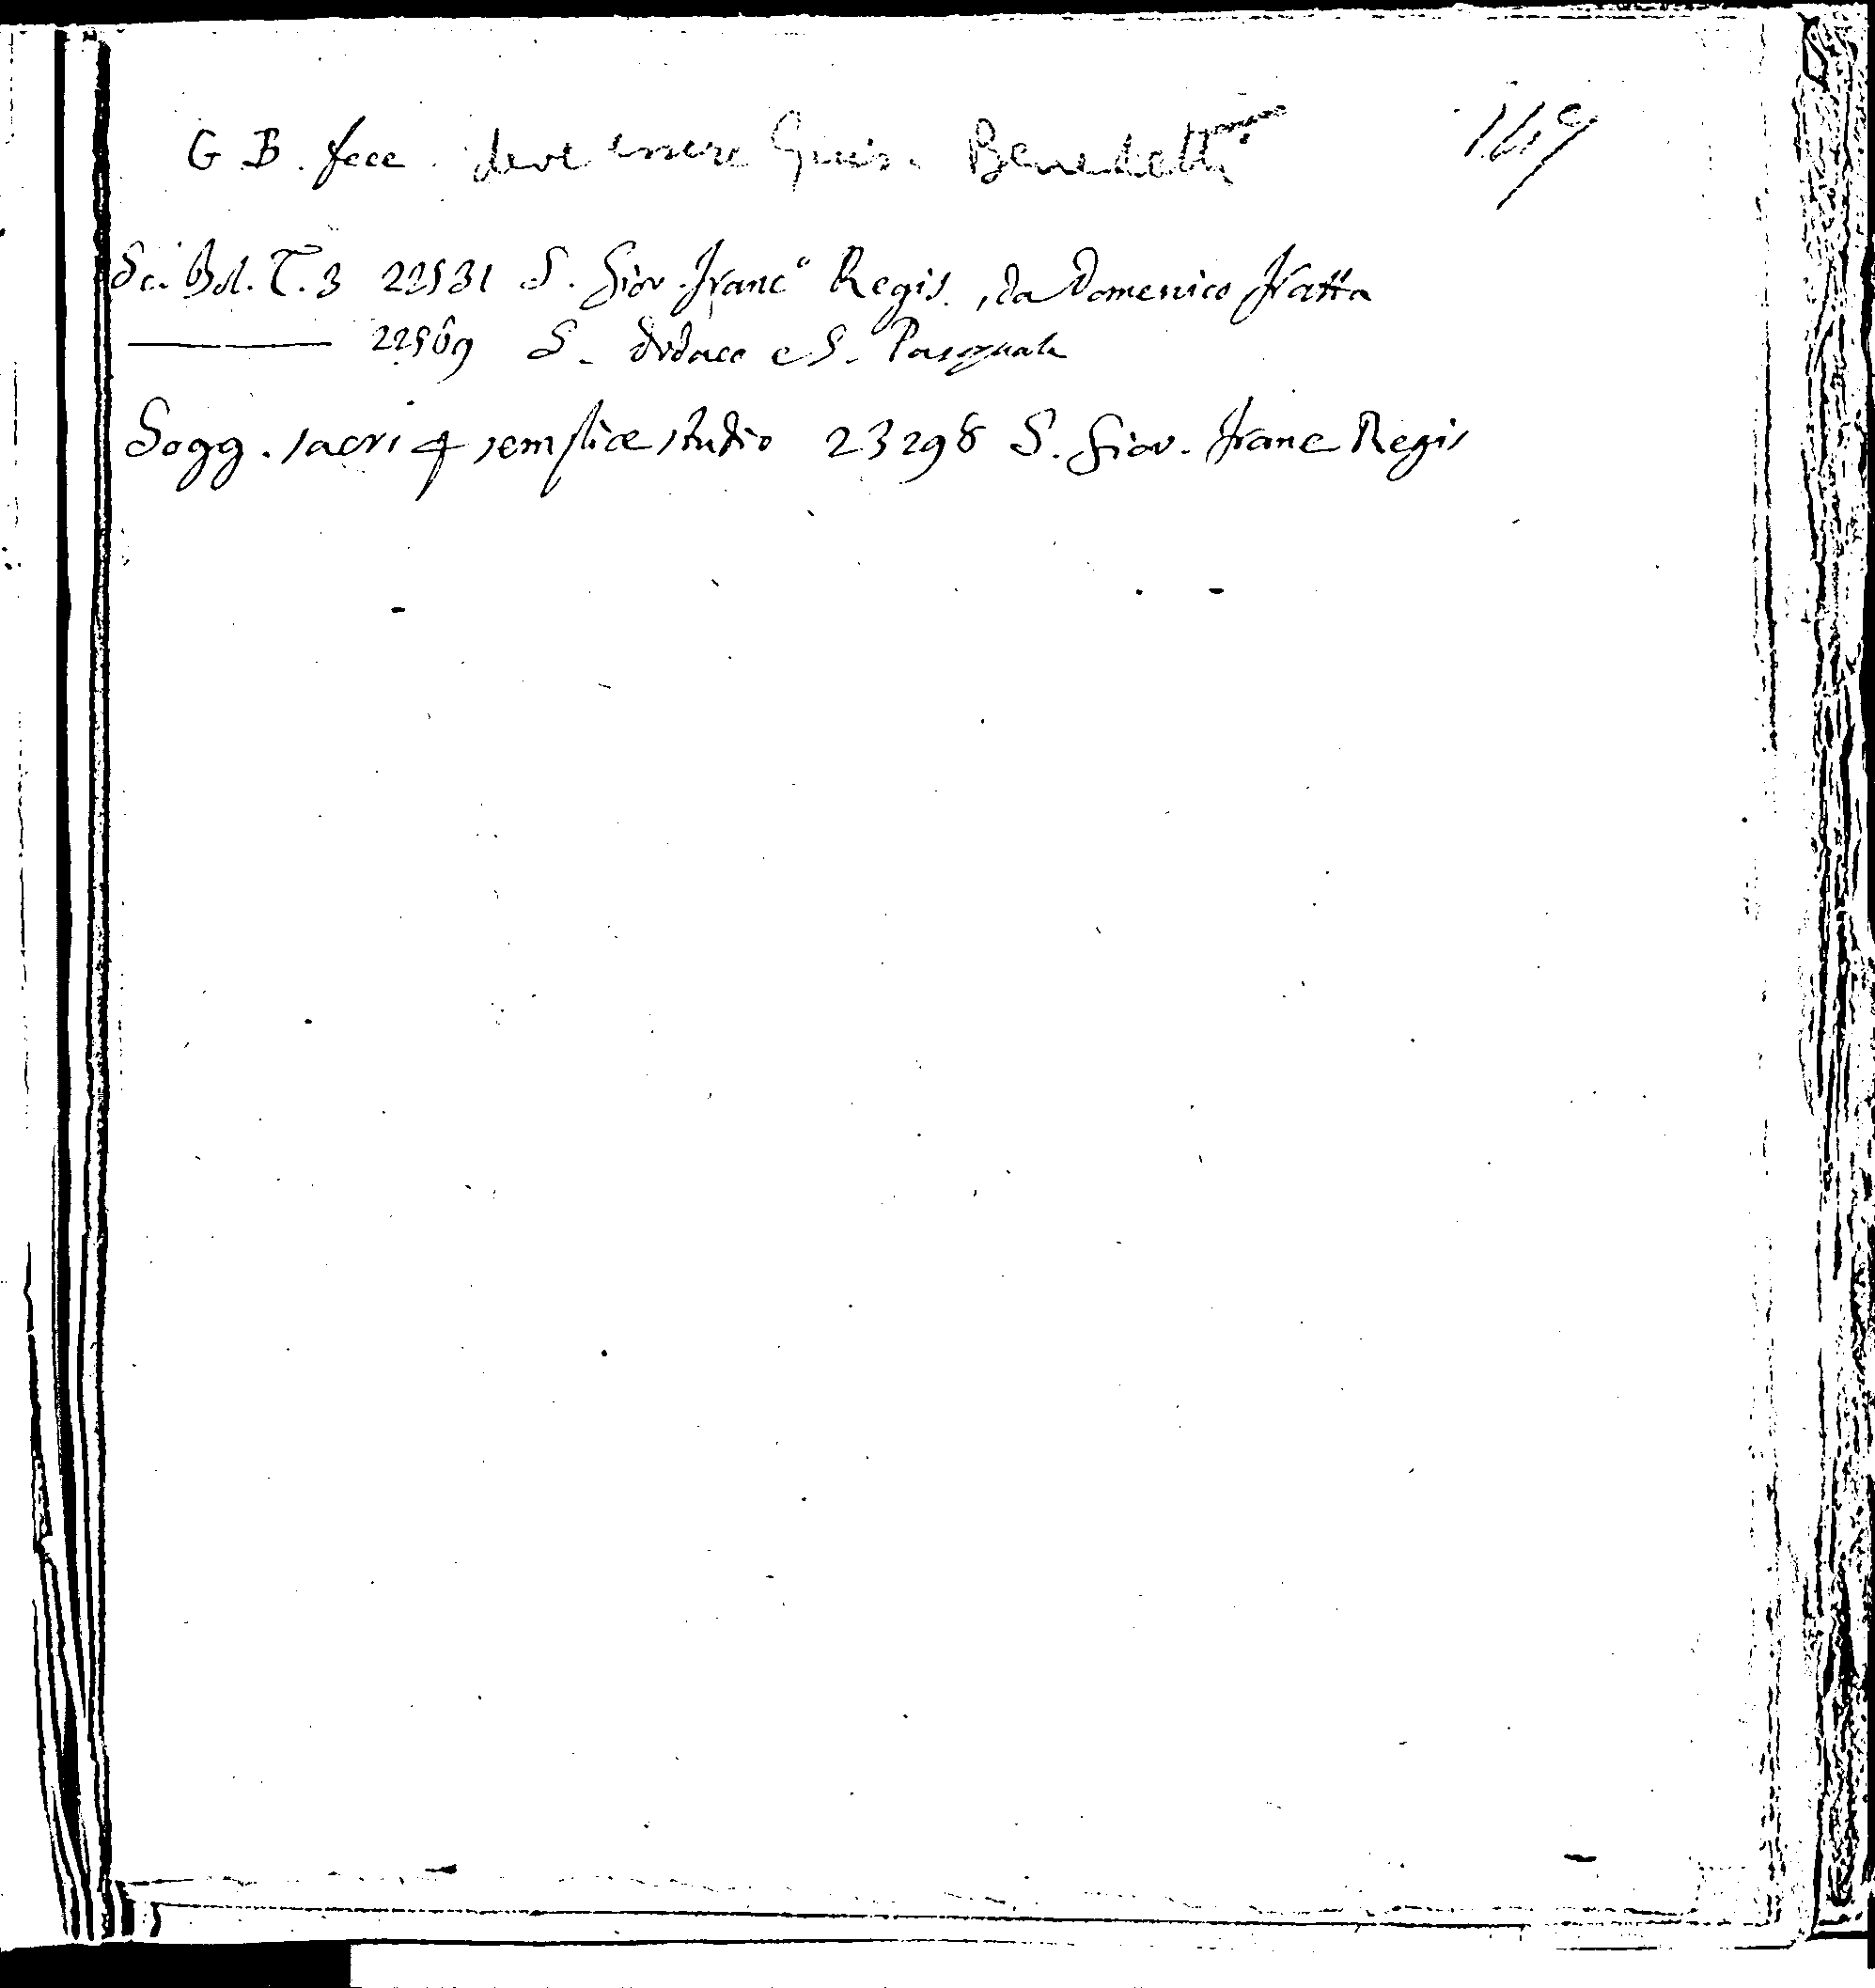 G B. fece. deve essere Gius. Benedetti 149
Sc. Bol. T. 3 22531 S. Giov. Franc.º Regis, da Domenico Fratta
——— 22569 S. Didaco e S. Pasquale
Sogg. sacri p semplice studio 23298 S. Giov. Franc Regis